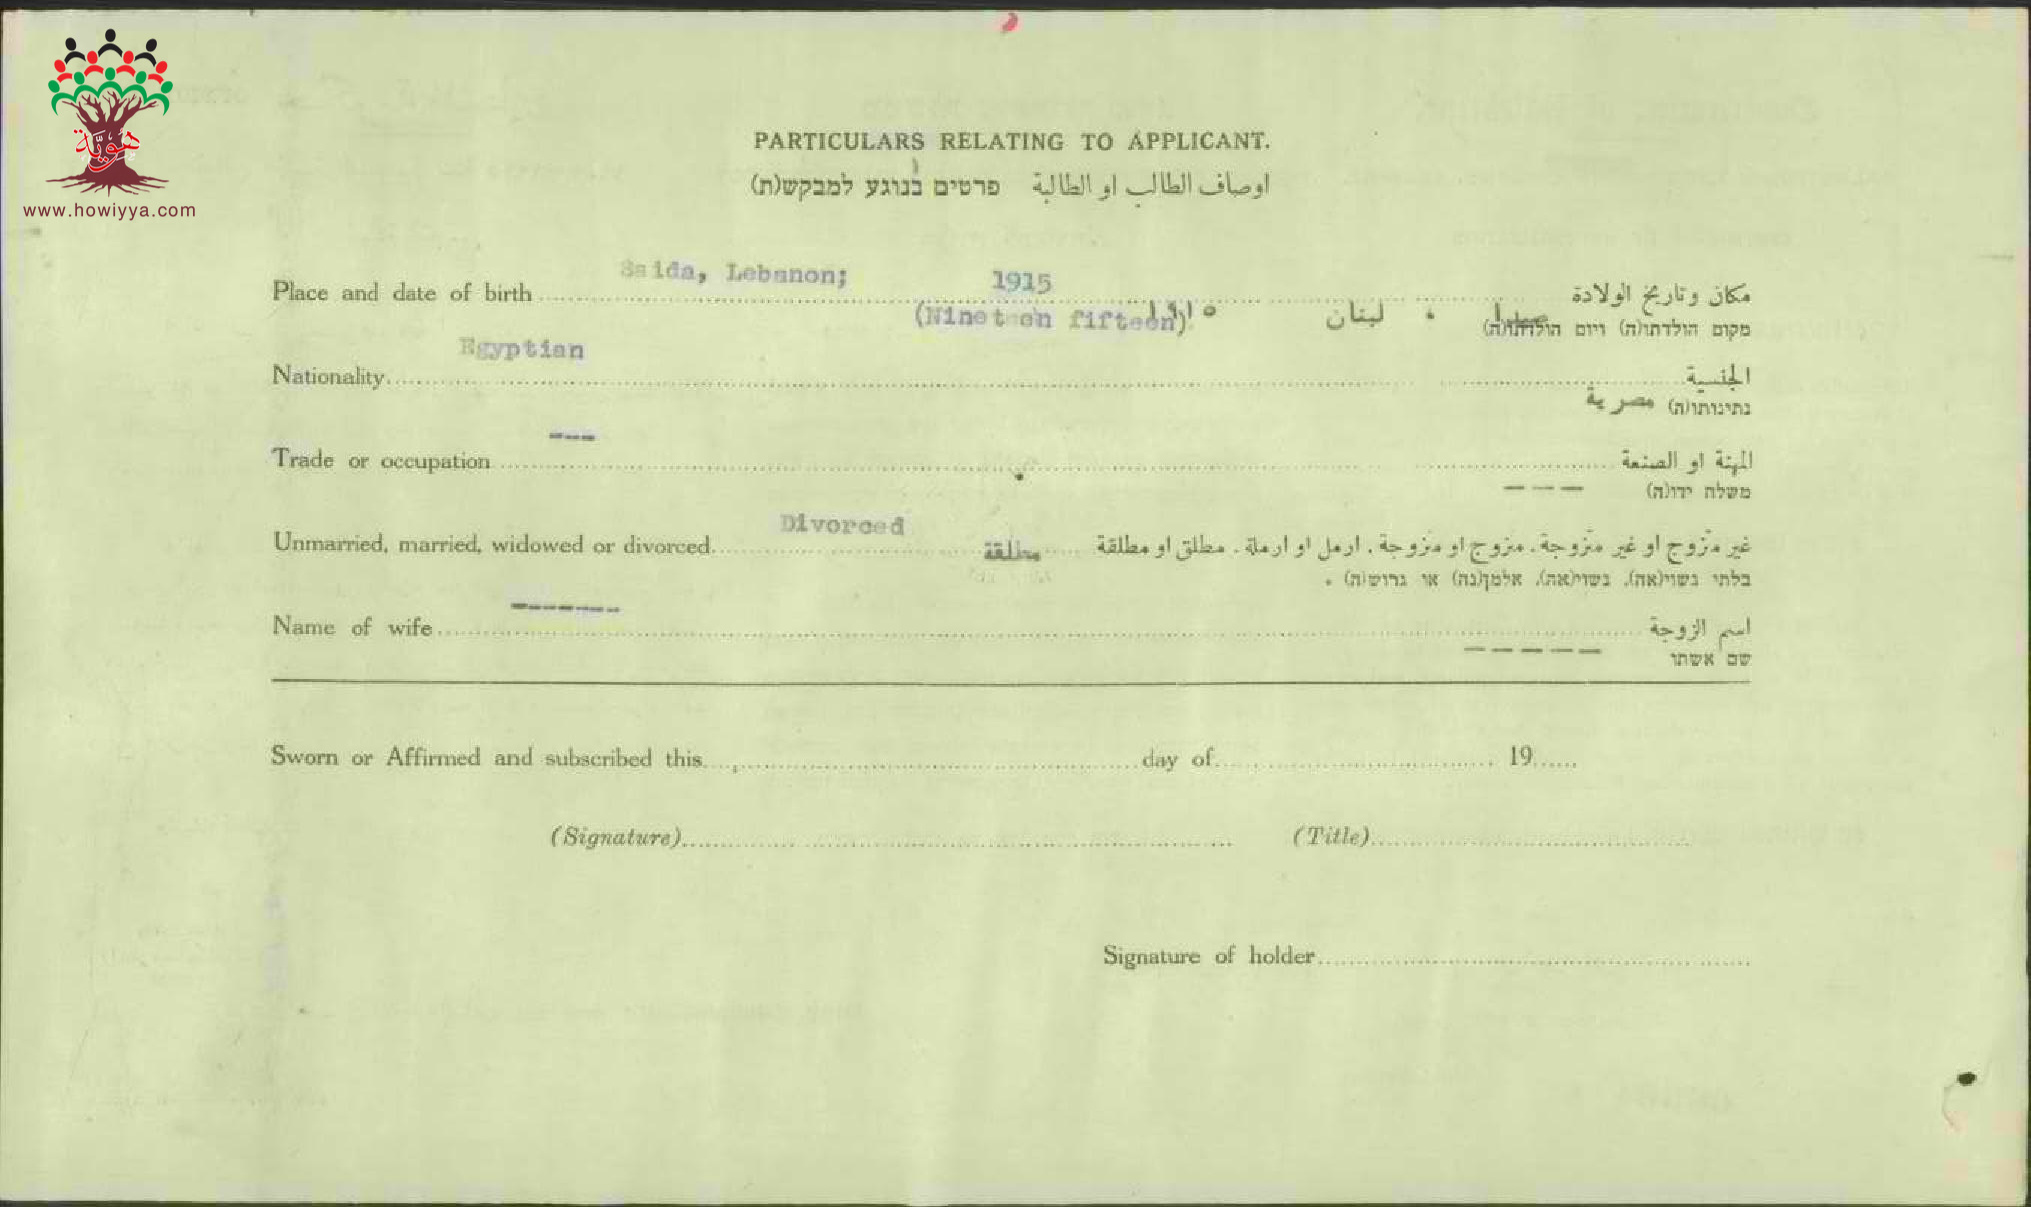 هوية
www.howiyya.com
PARTICULARS RELATING TO APPLICANT.
פרטים בנוגע למבקש(ת) اوصاف الطالب او الطالبة
Saida, Lebanon; 1915
Place and date of birth مكان وتاريخ الولادة
(Nineteen fifteen) ١٩١٥ صيدا ، لبنان
מקום הולדתו(ה) ויום הולדתו(ה)
Egyptian
Nationality الجنسية
נתינותו(ה) مصرية
---
Trade or occupation المهنة او الصنعة
משלח ידו(ה) ---
Divorced
Unmarried, married, widowed or divorced مطلقة غير متزوج او غير متزوجة، متزوج او متزوجة، ارمل او ارملة، مطلق او مطلقة
בלתי נשוי(אה), נשוי(אה), אלמן(נה) או גרוש(ה) .
-------
Name of wife اسم الزوجة
שם אשתו -----
Sworn or Affirmed and subscribed this day of 19
(Signature) (Title)
Signature of holder